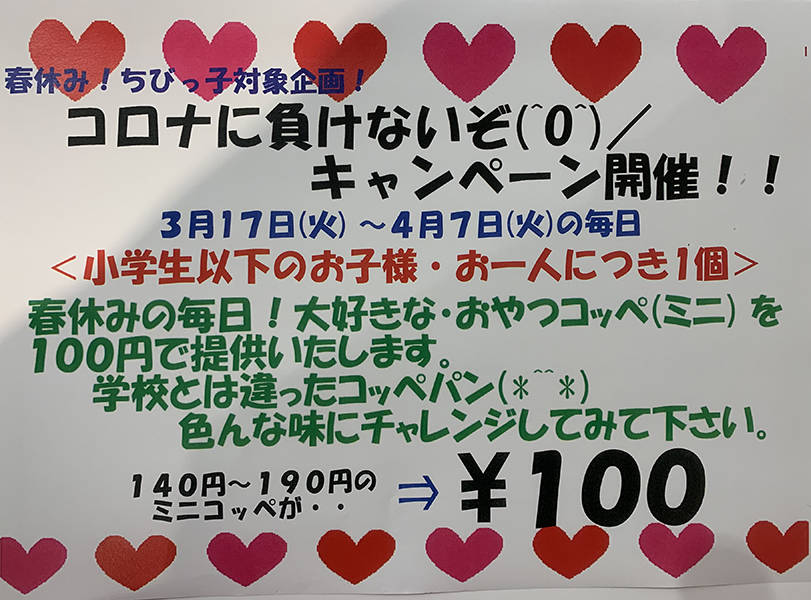 春休み！ちびっ子対象企画！
コロナに負けないぞ(^0^)／
キャンペーン開催！！
3月17日(火) ～4月7日(火)の毎日
＜小学生以下のお子様・お一人につき1個＞
春休みの毎日！大好きな・おやつコッペ(ミニ) を
100円で提供いたします。
学校とは違ったコッペパン(*^^*)
色んな味にチャレンジしてみて下さい。
140円～190円の
ミニコッペが・・
⇒ ￥100